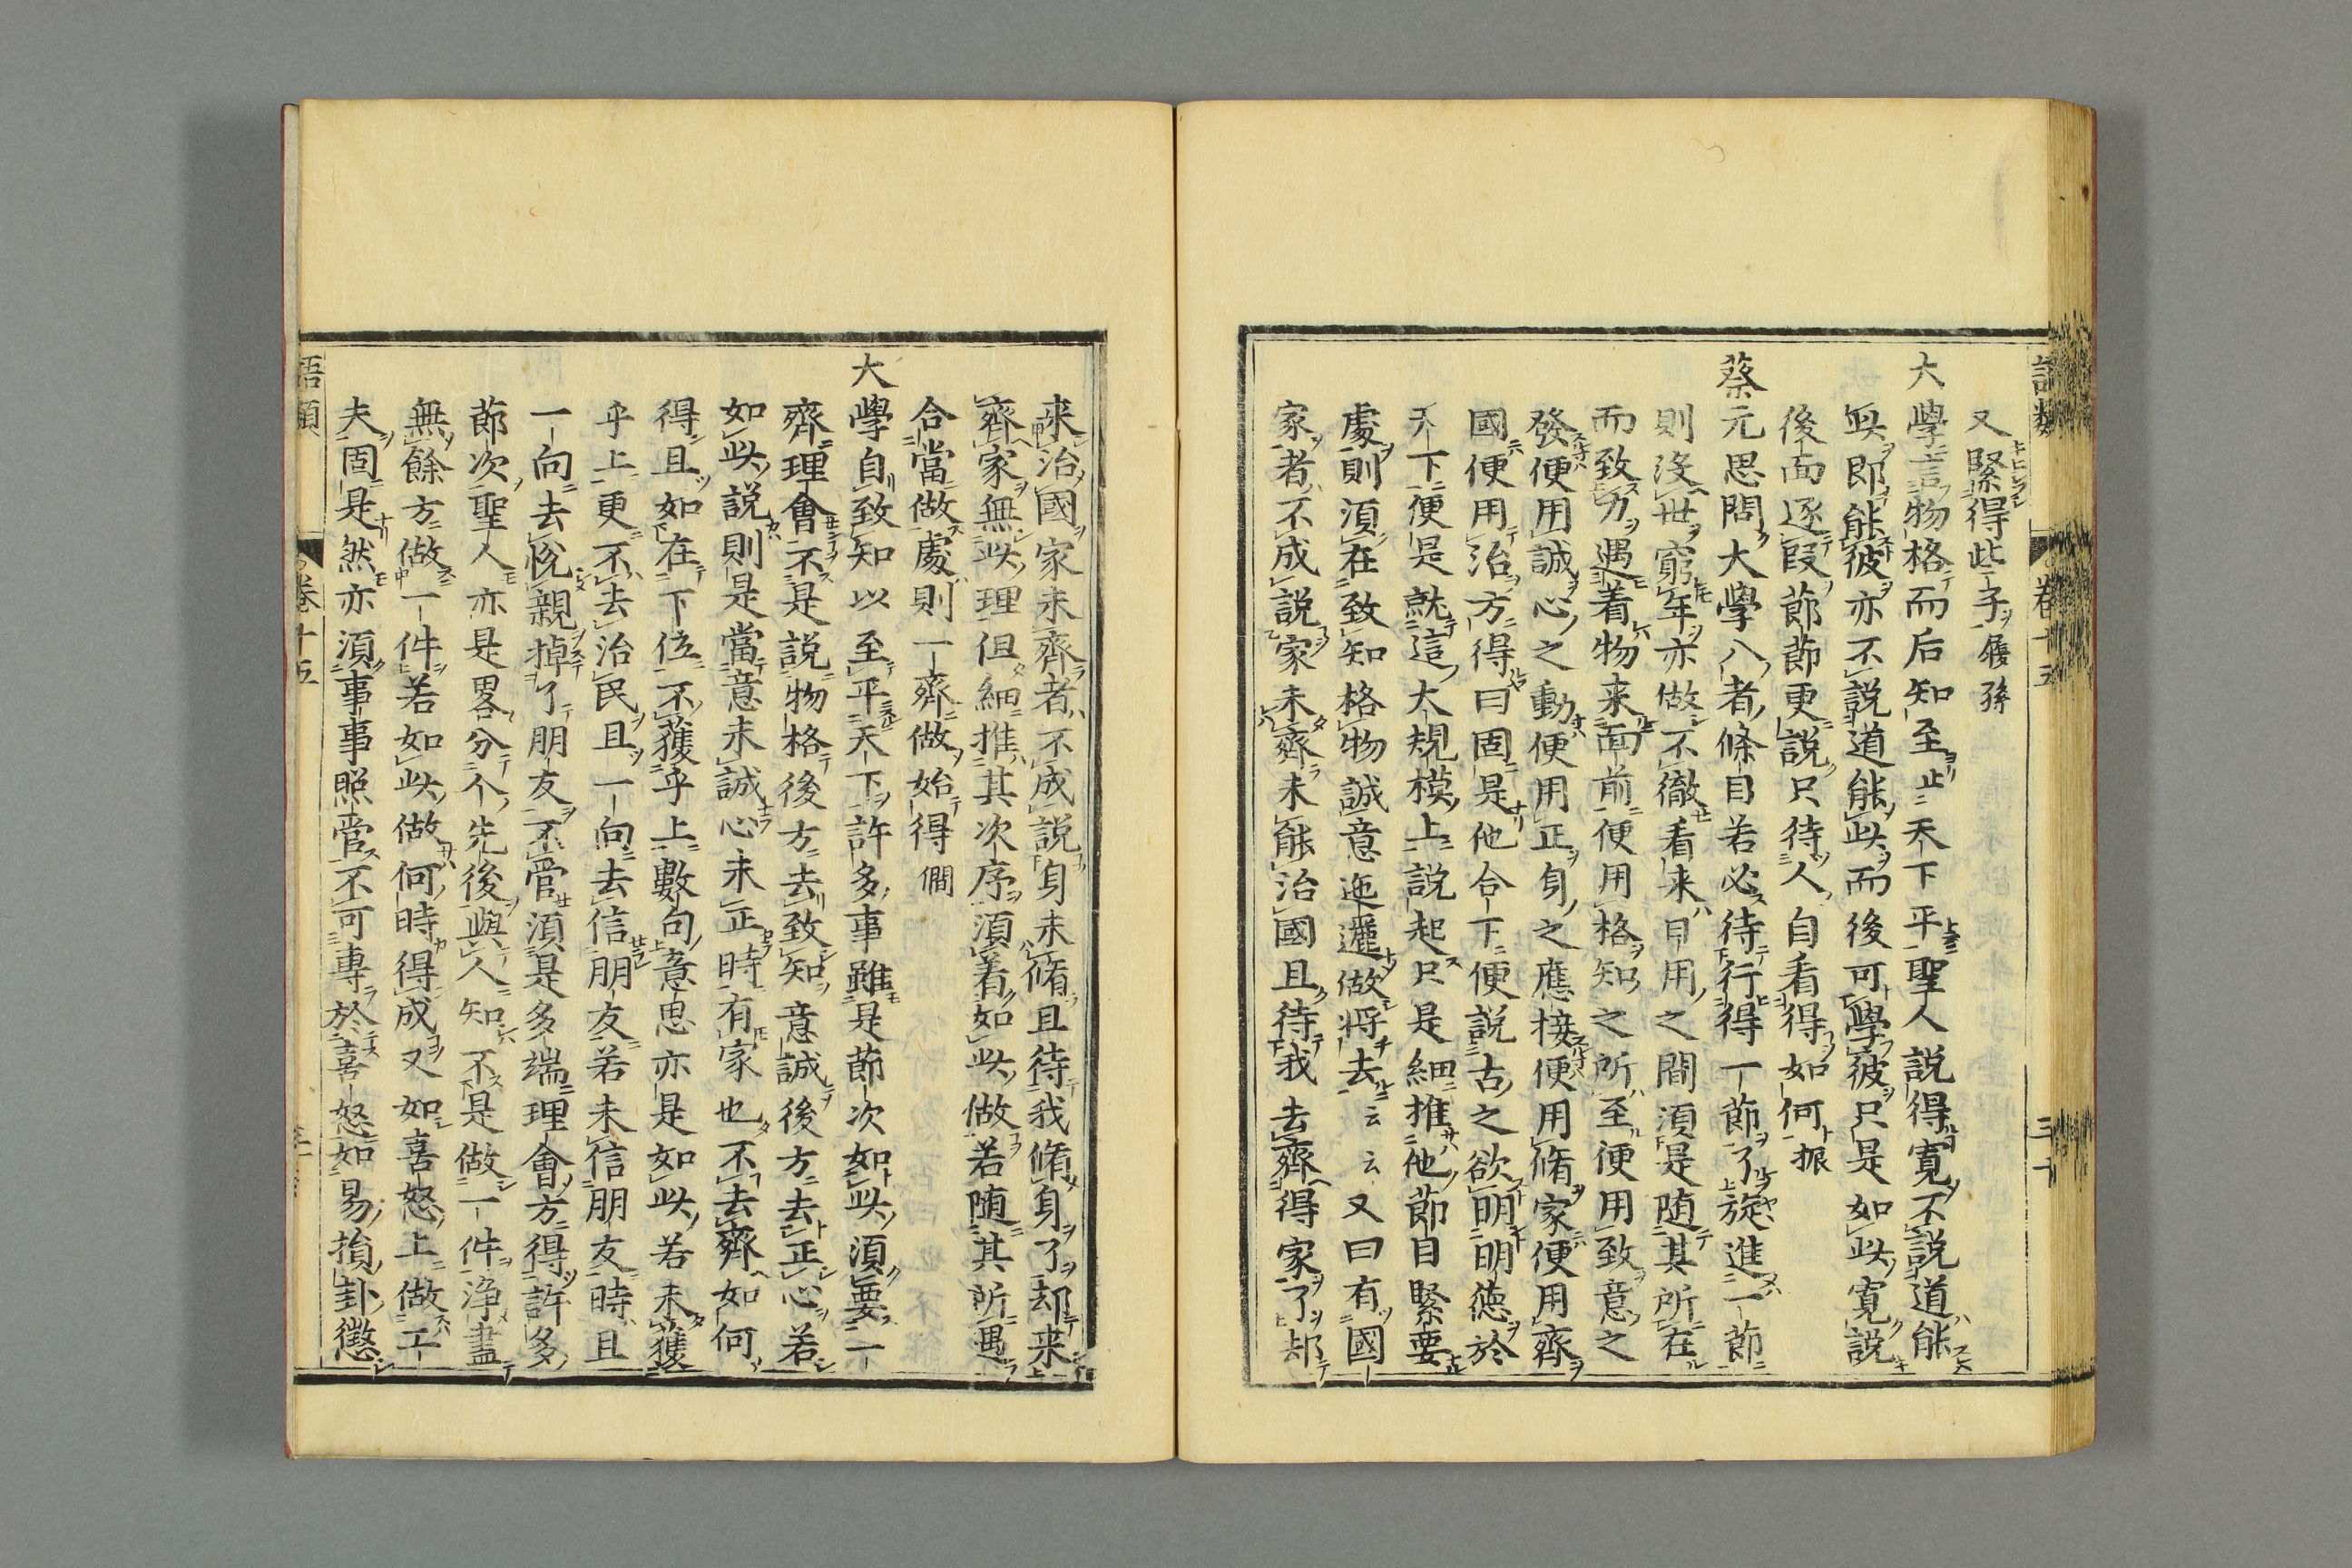 語類
卷十五
三十
又緊得些子履孫
大學言物格而后知至止天下平聖人説得寬不説道能
此即能彼亦不説道能此而後可學彼只是如此寬説
後面逐段節節更説只待人自看得如何振
蔡元思問大學八者條目若必待行得一節了旋進一節
則沒世窮年亦做不徹看来日用之間須是随其所在
而致力遇着物来面前便用格知之所至便用致意之
發便用誠心之動便用正身之應接便用脩家便用齊
國便用治方得曰固是他合下便説古之欲明明德於
天下便是就這大規模上説起只是細推他節目緊要
處則須在致知格物誠意迤邐做将去云云又曰有國
家者不成説家未齊未能治國且待我去齊得家了却
来治國家未齊者不成説身未脩且待我脩身了却来
齊家無此理但細推其次序須着如此做若随其所遇
合當做處則一齊做始得僩
大學自致知以至平天下許多事雖是節次如此須要一
齊理會不是説物格後方去致知意誠後方去正心若
如此説則是當意未誠心未正時有家也不去齊如何
得且如在下位不獲乎上數句意思亦是如此若未獲
乎上更不去治民且一向去信朋友若未信朋友時且
一向去悅親掉了朋友不管須是多端理會方得許多
節次聖人亦是畧分个先後與人知不是做一件浄盡
無餘方做一件若如此做何時得成又如喜怒上做工
夫固是然亦須事事照管不可專於喜怒如易損卦懲
語類
卷十五